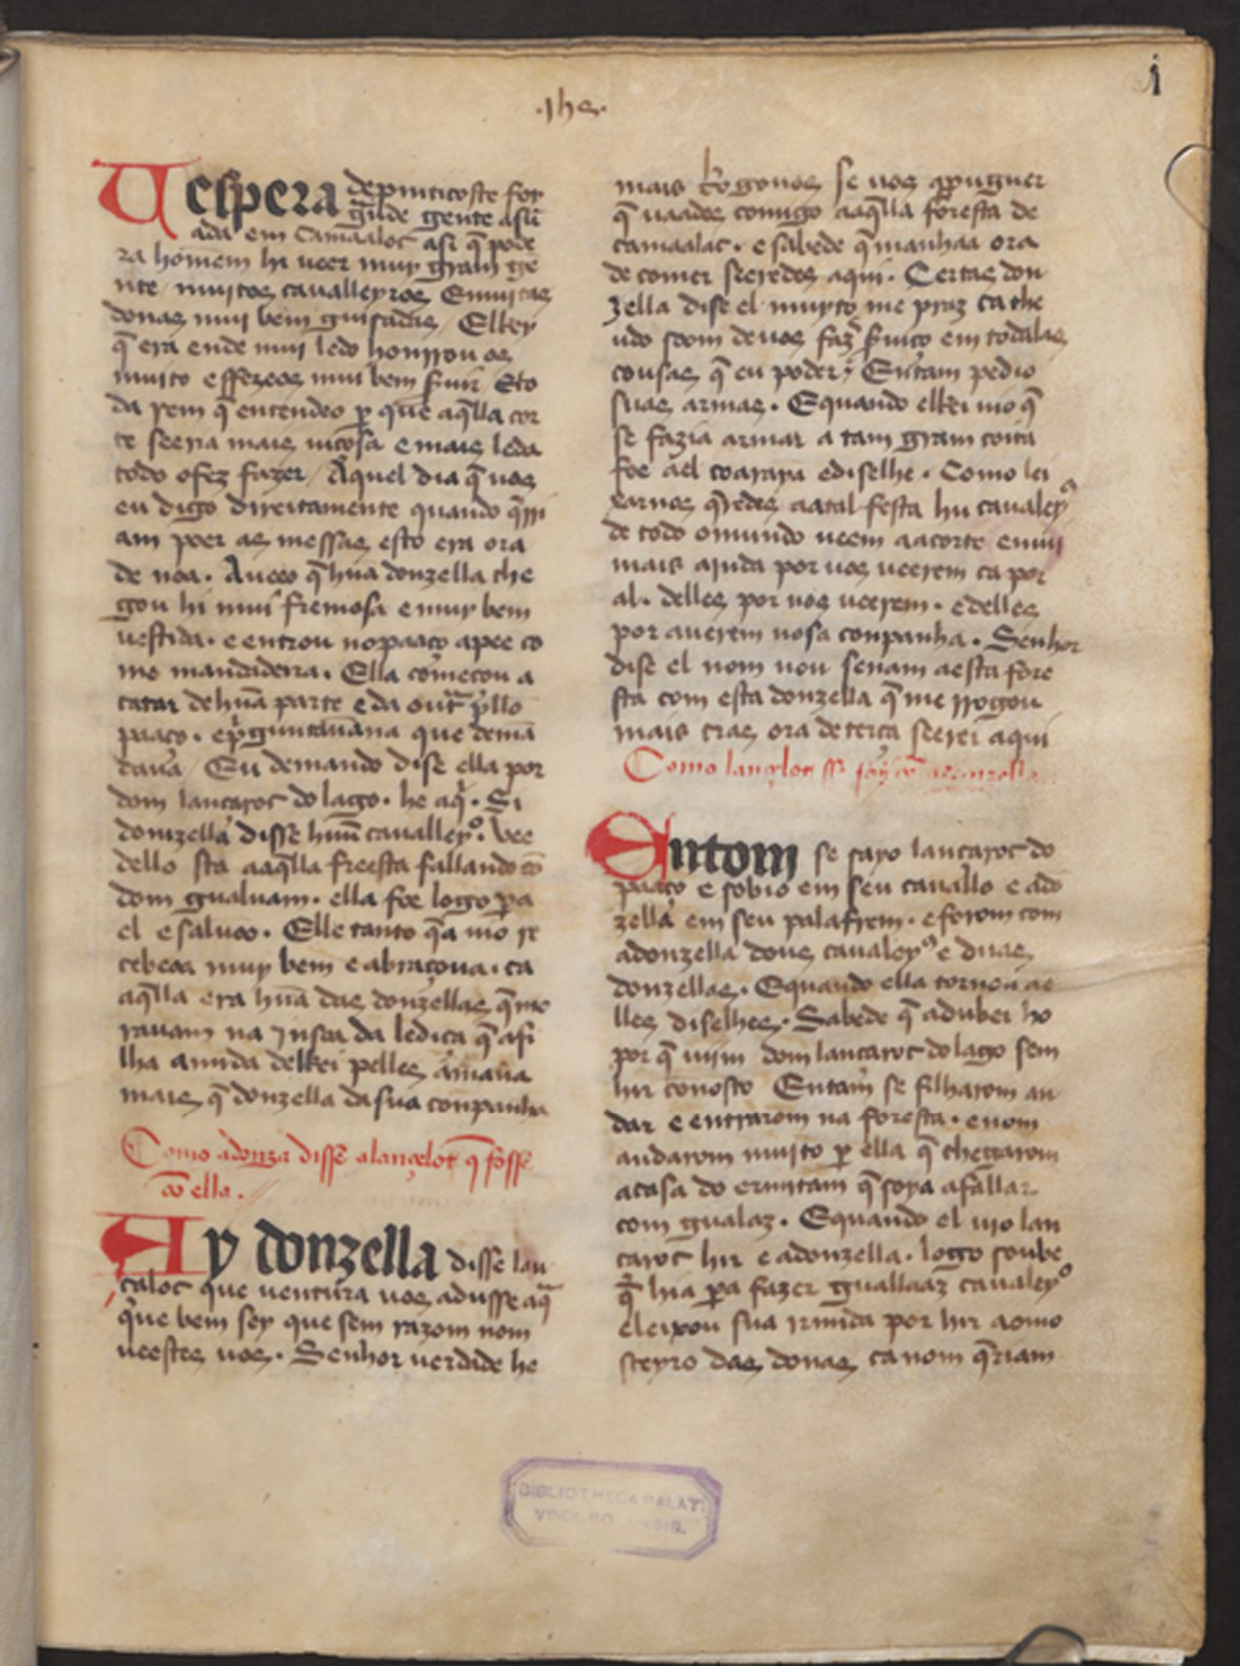 .Jhs.
j
Vespera depinticoste foy
grãde gente asũ
ada em Camaaloc asi q̃ pode
ra homem hi ueer muy gram ge
nte / muytos caualleyros Emuitas
donas mui bem guisadas / ElRey
q̃ era ende mui ledo honrrou os
muito effezeos mui bem seruir Eto
da rem q̃ entendeo per que aq̃lla cor
te seeria mais uiçosa e mais leda
todo ofez fazer / Aquel dia q̃ uos
eu digo direitamente quando q̃ri
am poer as messas esto era ora
de noa. Aueeo q̃ hũa donzella che
gou hi mui fremosa e muy bem
uestida. e entrou nopaaço apee co
mo mandadeira. Ella começou a
catar dehũa parte e da outra pello
paaço. epreguntauãna que demã
daua / Eu demando disse ella por
dom lancaroc do lago. he aqi. Si
donzella disse huũ caualleyº. Vee
dello sta aaq̃lla freesta fallando cõ
dom gualuam. ella foe logo pera
el e saluoo. Elle tanto q̃a uio re
cebeoa muy bem e abraçoua. ca
aq̃lla era hũa das donzellas q̃mo
rauam na Jnsoa da lediça q̃ afi
lha amida delRei pelles amaua
mais q̃ donzella dasua conpanha
Como adonza disse alançelot q̃ fosse
cõ ella.
Ay donzella disse lan
caloc que uentura uos adusse aqi
que bem sey que sem razom nom
ueestes uos. Senhor uerdade he
mais Rogouos se uos aprouguer
q̃ uaades comigo aaq̃lla foresta de
camaalac. e sabede q̃ manhaa ora
de comer seeredes aqui. Certas don
zella dise el muyto me praz ca the
udo soom deuos fazer seruiço em todalas
cousas q̃ eu poder / Entam pedio
suas armas. Equando elRei uio q̃
se fazia armar a tam gram coita
foe ael coaraya ediselhe. Como lei
xarnos q̃redes aatal festa hu caualeyº
de todo omundo ueem aacorte emui
mais ajnda por uos ueerem ca por
al. delles por uos ueerem. edelles
por auerem uosa conpanha. Senhor
dise el nom uou senam aesta fore
sta com esta donzella q̃ me rrogou
mais cras ora deterça seerei aqui
Como lançelot sse foy cõ adonzella
Entom se sayo lancaroc do
paaço e sobio em seu cauallo e ado
zella em seu palafrem. eforom com
adonzella dous caualeyºs e duas
donzellas. Equando ella tornou ae
lles diselhes. Sabede q̃ adubei ho
por q̃ uijm dom lancaroc dolago sem
hir conosco Entam se filharom an
dar e entrarom na foresta. enom
andarom muito per ella q̃ chegarom
acasa do ermitam q̃ soya afallar
com gualaz. Equando el uio lan
caroc hir e adonzella. logo soube
q̃ hia pera fazer guallaaz caualeyº
eleixou sua irmida por hir aomo
steyro das donas ca nom q̃riam
BIBLIOTHECA PALAT.